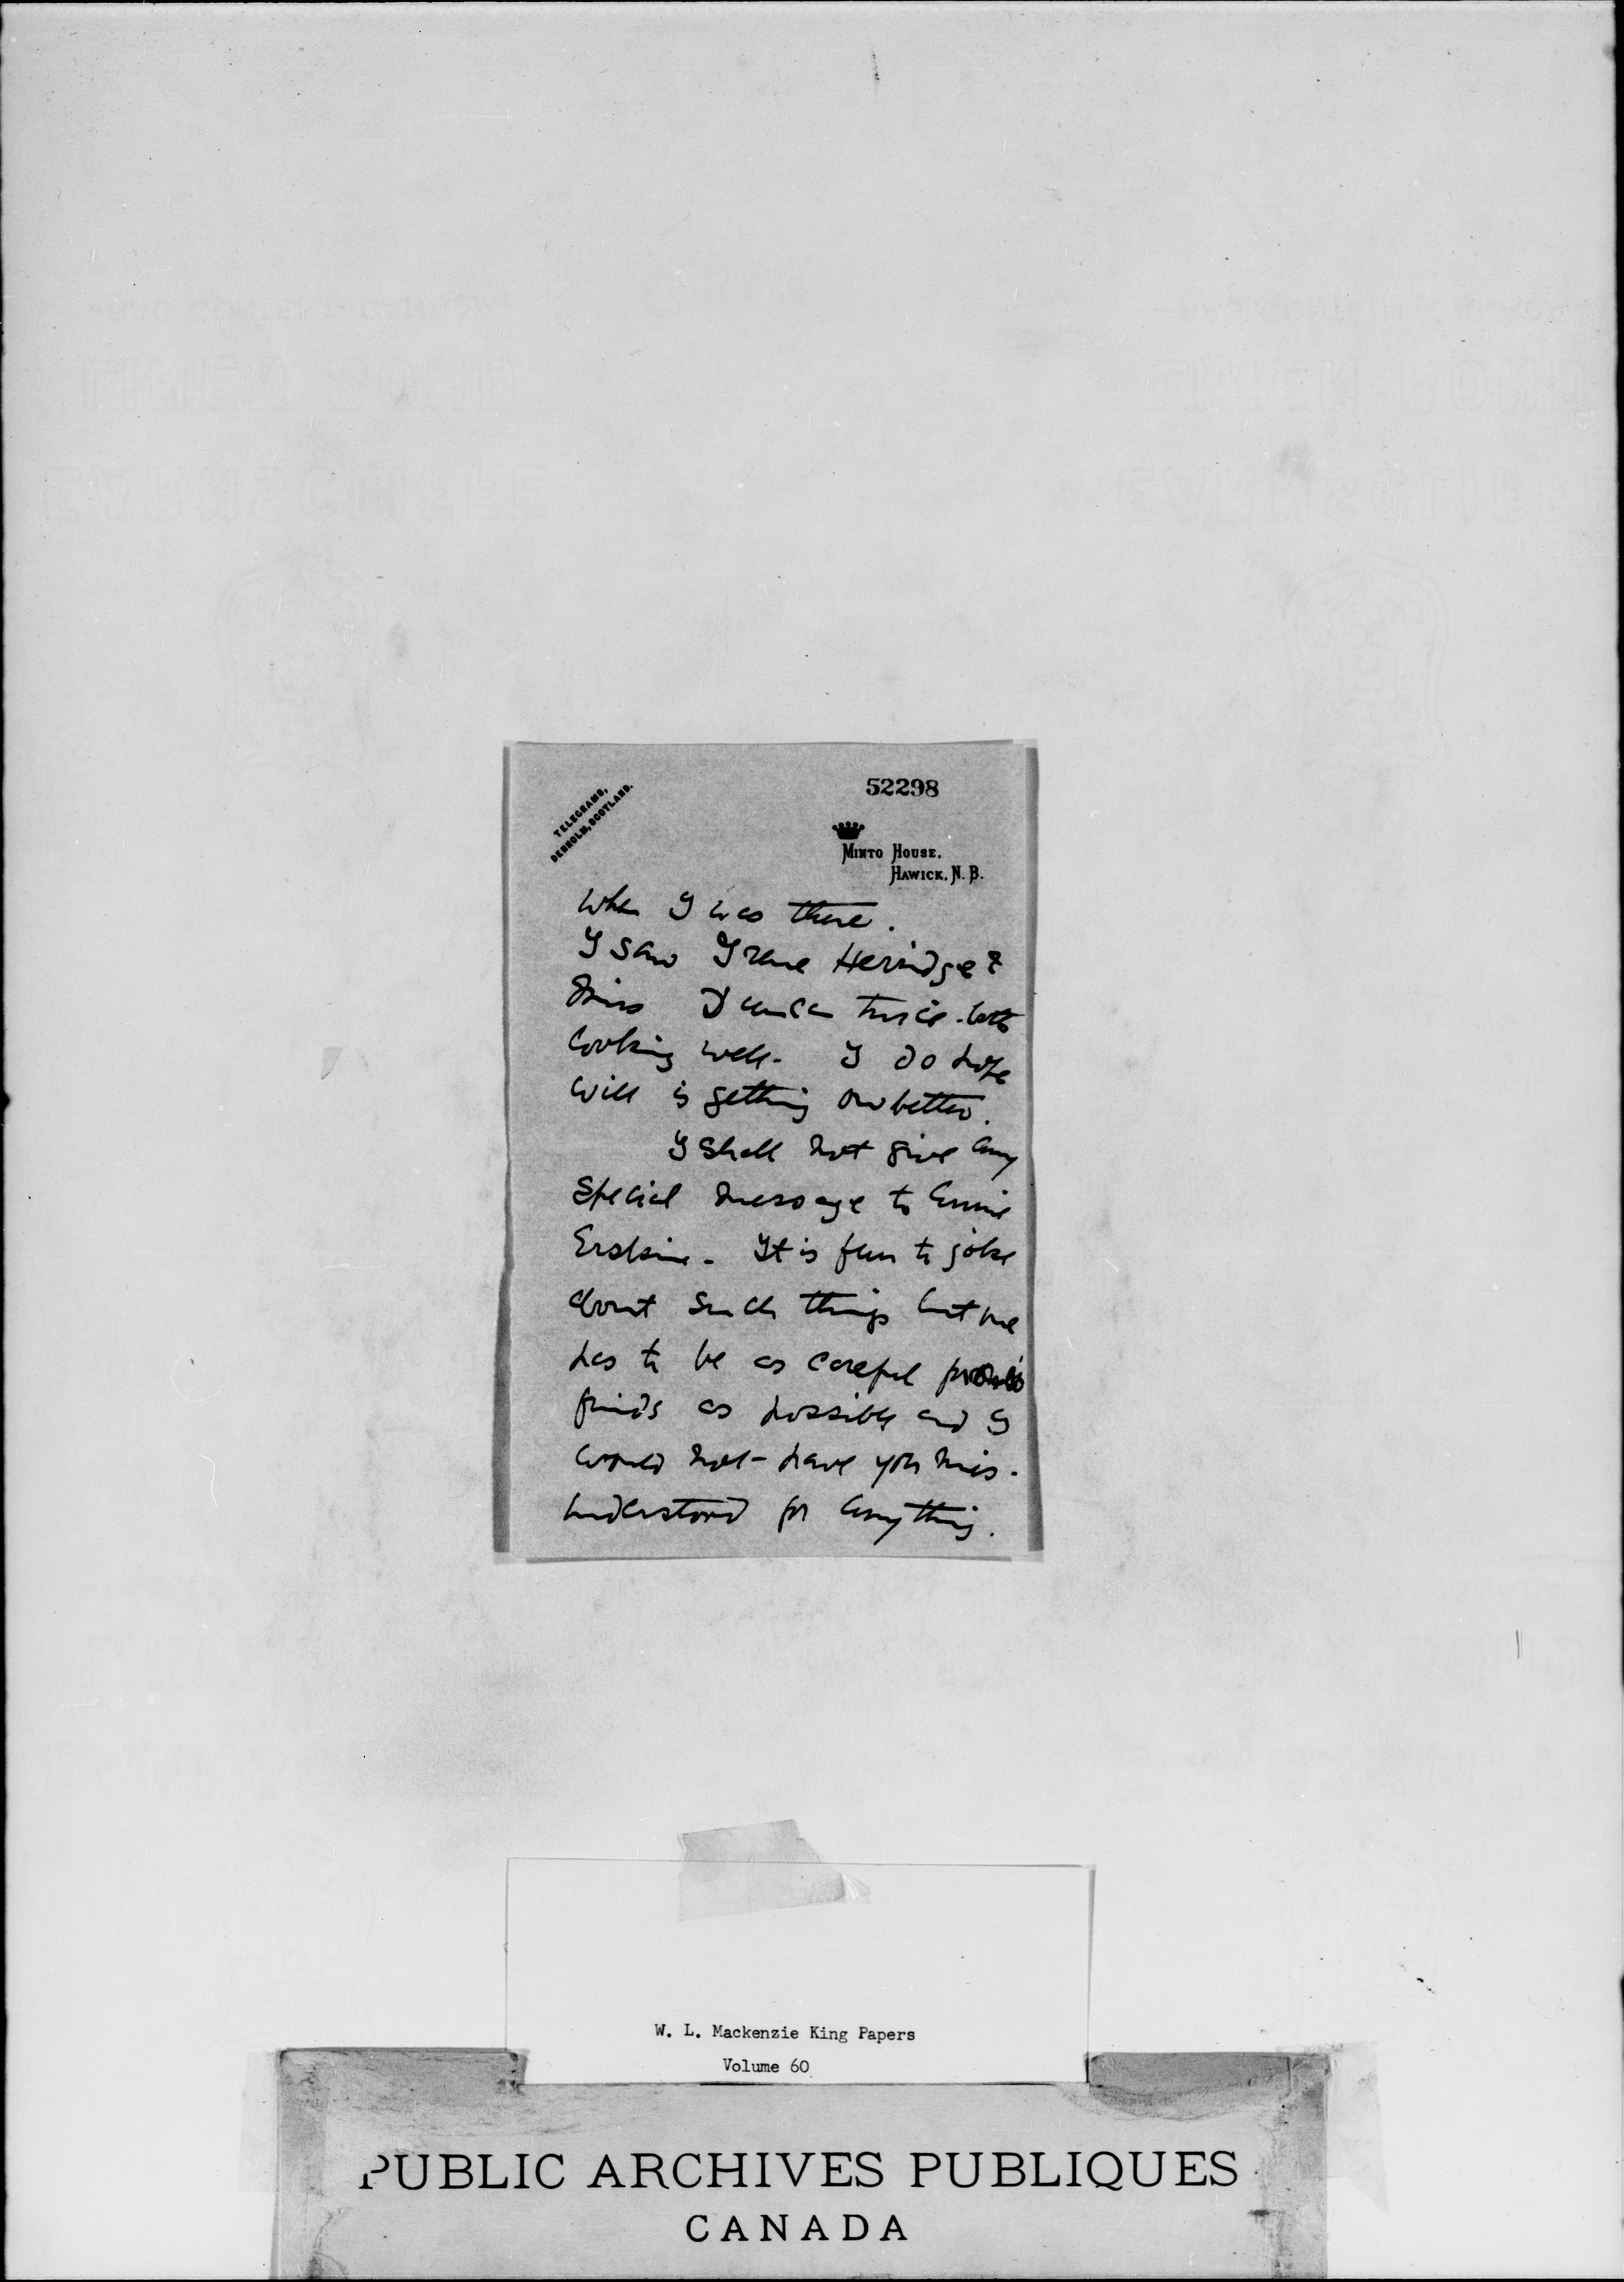 52298
TELEGRAMS,
DENHOLM, SCOTLAND.
MINTO HOUSE,
HAWICK, N. B.
when I was there.
I saw Irene Herridge &
Miss Duncan twice - both
looking well. I do hope
Will is getting on better.
I shall not give any
special message to Ernie
Erskine. It is fun to joke
about such things but one
has to be as careful
friends as possible and I
would not have you mis-
understood for anything.
W. L. Mackenzie King Papers
Volume 60
PUBLIC ARCHIVES PUBLIQUES
CANADA